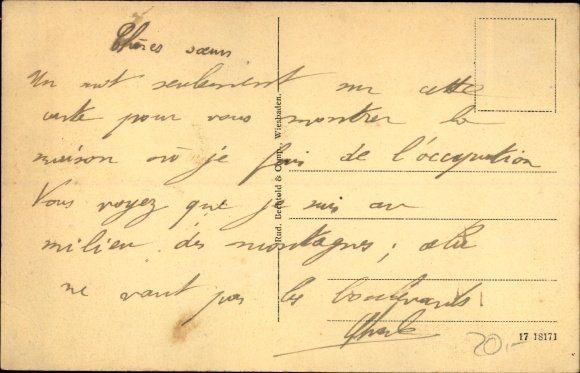 Chères sœurs
Un mot seulement sur cette
carte pour vous montrer la
maison où je fais de l'occupation
Vous voyez que je suis au
milieu des montagnes ; cela
ne vaut pas les boulevards !
Charles
Rud. Bechtold & Comp., Wiesbaden.
17 18171
20.-